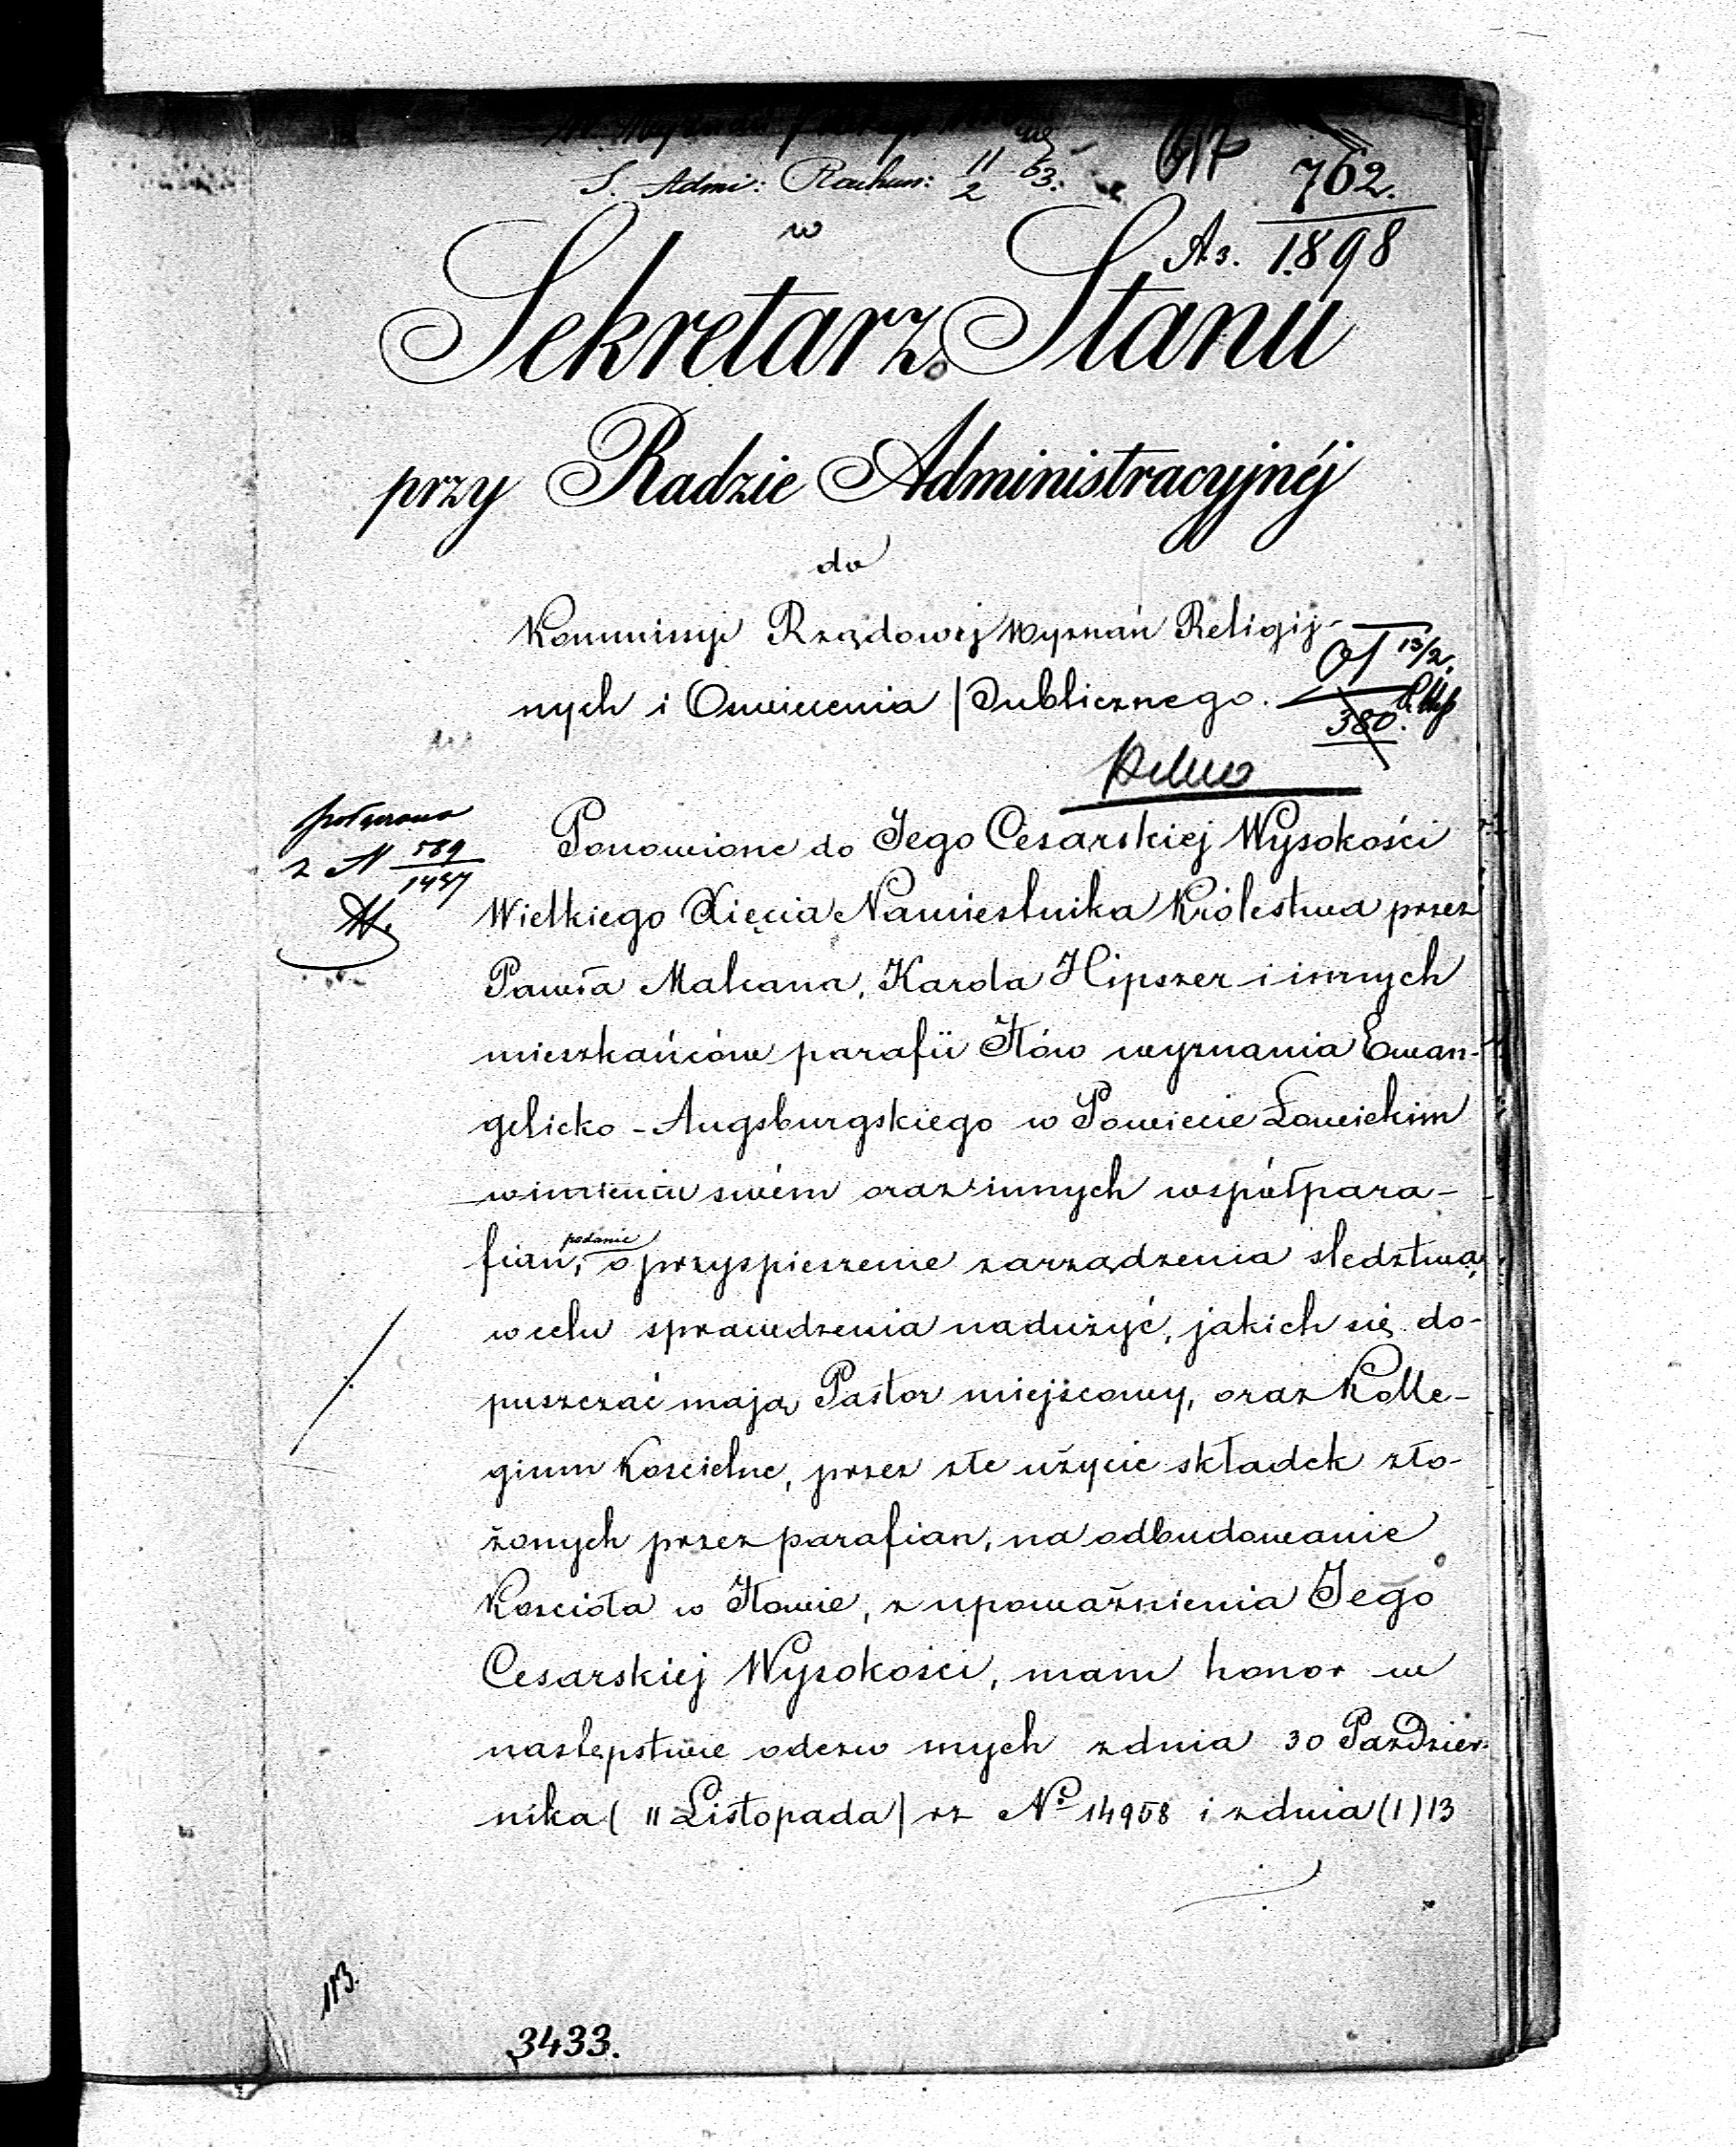 S. Admi: Rachun: 11/2 63.
617
762.
As. 1898
w
Sekretarz Stanu
przy Radzie Administracyjnéj
do
Kommissyi Rządowej Wyznań Religij-
nych i Oswiecenia Publicznego.
13/2
380.
połączono
z N 589/1437
Ponowione do Jego Cesarskiej Wysokości
Wielkiego Xięcia Namiestnika Królestwa przez
Pawła Malcana, Karola Hipszer i innych
mieszkańców parafii Iłów wyznania Ewan-
gelicko - Augsburgskiego w Powiecie Łowickim
w imieniu swém oraz innych współpara-
fian, podanie o przyspieszenie zarządzenia sledztwa,
w celu sprawdzenia nadużyć, jakich się do-
puszczać mają Pastor miejscowy, oraz Kolle-
gium Koscielne, przez złe użycie składek zło-
żonych przez parafian, na odbudowanie
Koscioła w Iłowie, z upoważnienia Jego
Cesarskiej Wysokosci, mam honor w
następstwie odezw mych z dnia 30 Pazdzier-
nika (11 Listopada) rz No 14958 i z dnia (1) 13
113.
3433.